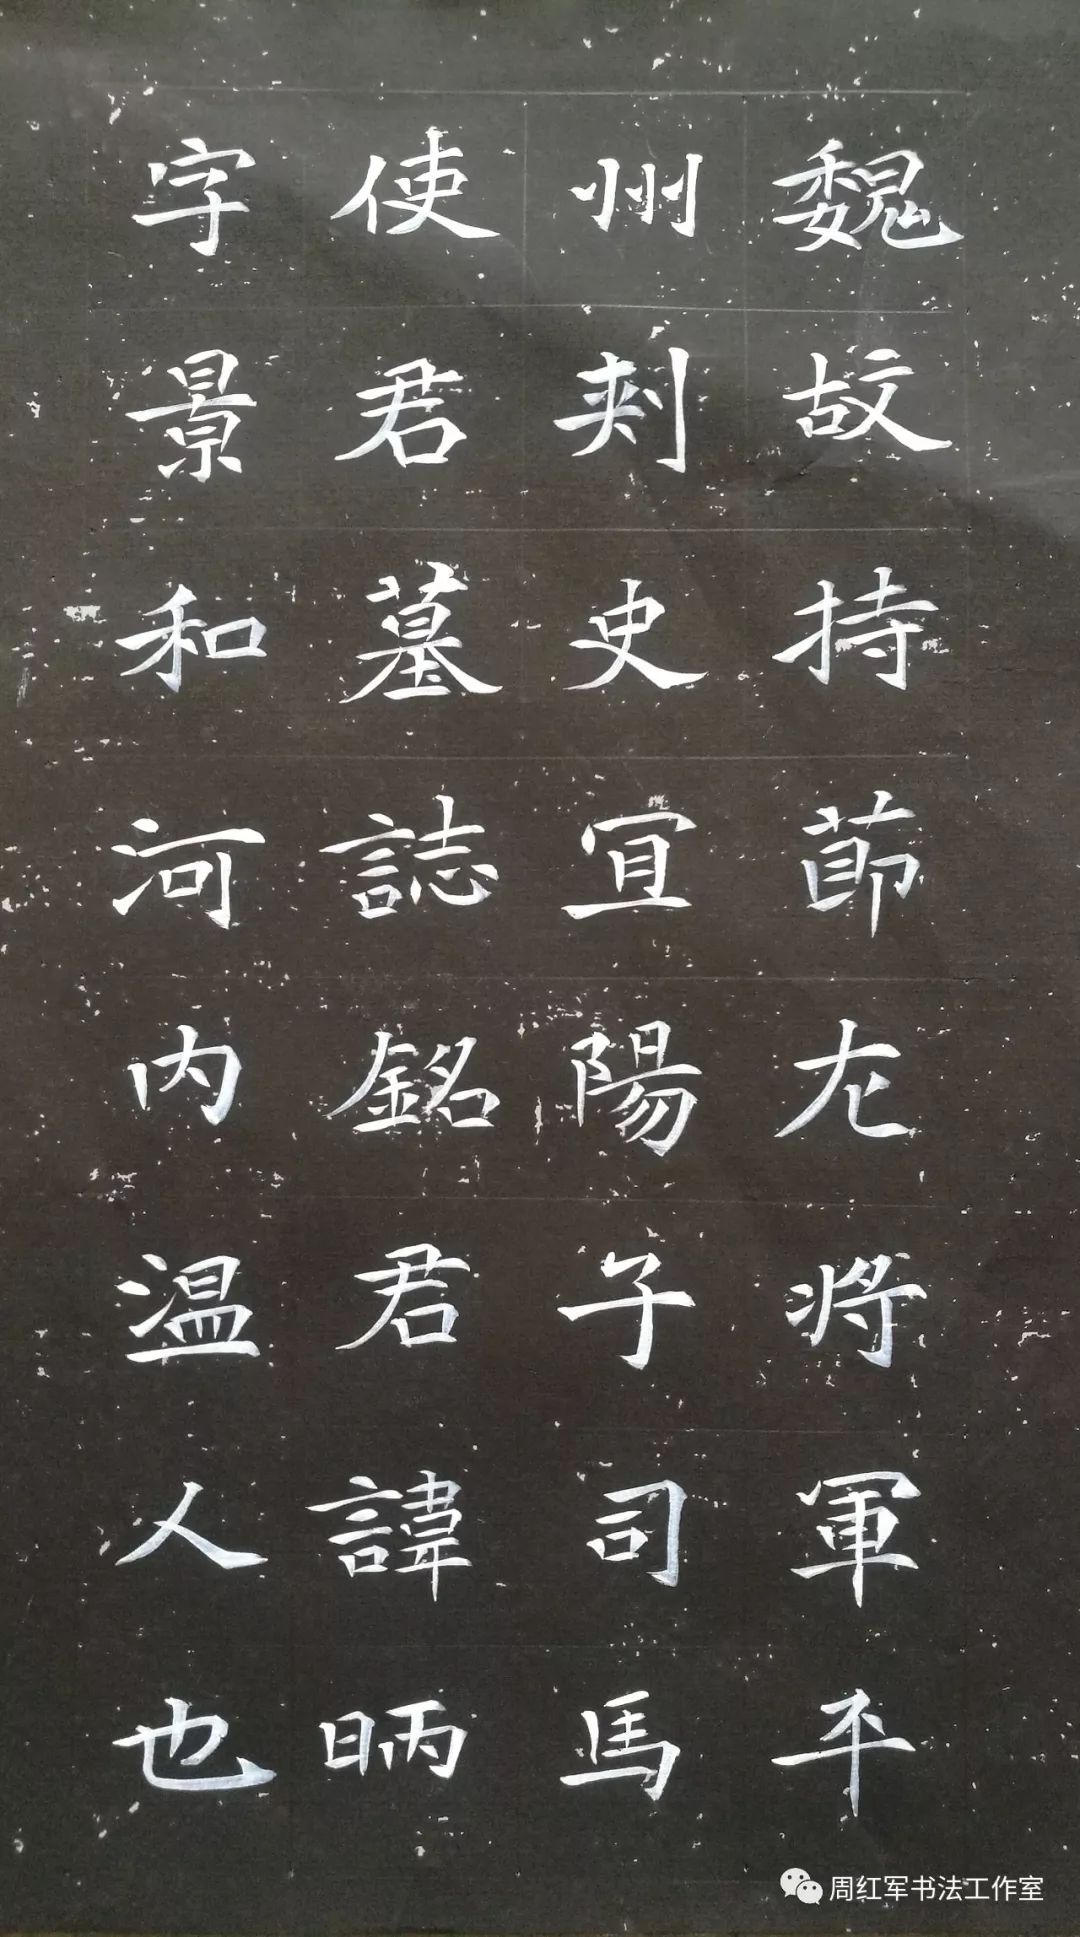 魏故持節左將軍平
州刾史宜陽子司馬
使君墓誌銘君諱昞
字景和河内温人也
周红军书法工作室